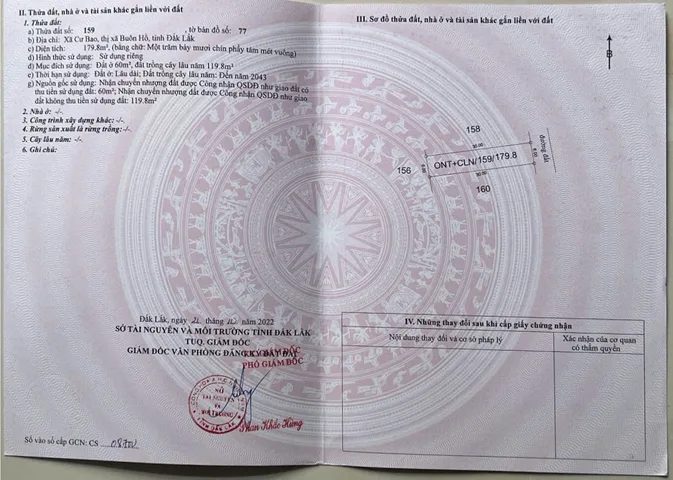 II. Thửa đất, nhà ở và tài sản khác gắn liền với đất
1. Thửa đất:
a) Thửa đất số: 159 , tờ bản đồ số: 77
b) Địa chỉ: Xã Cư Bao, thị xã Buôn Hồ, tỉnh Đắk Lắk
c) Diện tích: 179.8m², (bằng chữ: Một trăm bảy mươi chín phẩy tám mét vuông)
d) Hình thức sử dụng: Sử dụng riêng
đ) Mục đích sử dụng: Đất ở 60m², đất trồng cây lâu năm 119.8m²
e) Thời hạn sử dụng: Đất ở: Lâu dài; Đất trồng cây lâu năm: Đến năm 2043
g) Nguồn gốc sử dụng: Nhận chuyển nhượng đất được Công nhận QSDĐ như giao đất có
thu tiền sử dụng đất: 60m²; Nhận chuyển nhượng đất được Công nhận QSDĐ như giao
đất không thu tiền sử dụng đất: 119.8m²
2. Nhà ở: -/-
3. Công trình xây dựng khác: -/-
4. Rừng sản xuất là rừng trồng: -/-
5. Cây lâu năm: -/-
6. Ghi chú:
Đắk Lắk, ngày tháng năm 2022
SỞ TÀI NGUYÊN VÀ MÔI TRƯỜNG TỈNH ĐẮK LẮK
TUQ. GIÁM ĐỐC
GIÁM ĐỐC VĂN PHÒNG ĐĂNG KÝ ĐẤT ĐAI
PHÓ GIÁM ĐỐC
SỞ
TÀI NGUYÊN
VÀ
MÔI TRƯỜNG
TỈNH ĐẮK LẮK
Phan Khắc Hùng
Số vào sổ cấp GCN: CS
III. Sơ đồ thửa đất, nhà ở và tài sản khác gắn liền với đất
B
158
đường đất
30.00
156
ONT+CLN/159/179.8
30.00
160
IV. Những thay đổi sau khi cấp giấy chứng nhận
Nội dung thay đổi và cơ sở pháp lý
Xác nhận của cơ quan
có thẩm quyền